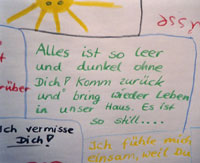 Alles ist so leer
und dunkel ohne
Dich! Komm zurück
und bring wieder Leben
in unser Haus. Es ist
so still....
rüber
Ich vermisse
Dich!
Ich fühle mich
einsam, weil Du